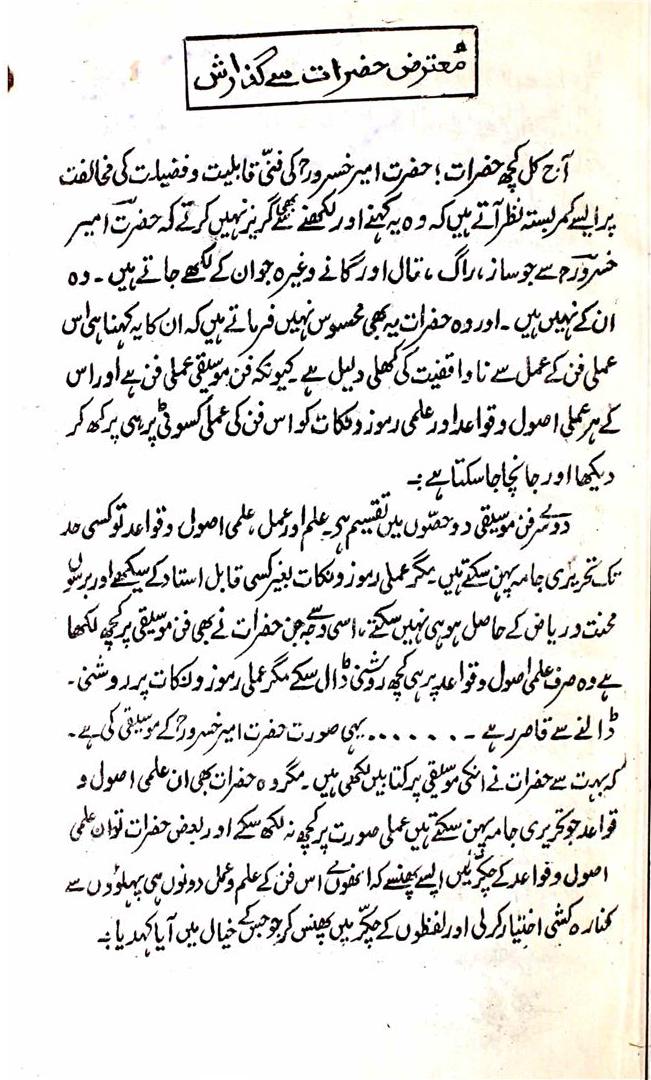 معترض حضرات سے گذارش
آج کل کچھ حضرات! حضرت امیر خسروؒ کی فنّی قابلیت و فضیلت کی مخالفت
پر ایسے کمر بستہ نظر آتے ہیں کہ وہ یہ کہنے اور لکھنے سے بھی گریز نہیں کرتے کہ حضرت امیر
خسروؒ سے جو ساز، راگ، تال اور گانے وغیرہ جو ان کے لکھے جاتے ہیں۔ وہ
ان کے نہیں ہیں۔ اور وہ حضرات یہ بھی محسوس نہیں فرماتے ہیں کہ ان کا یہ کہنا ہی اس
عملی فن کے عمل سے ناواقفیت کی کھلی دلیل ہے۔ کیونکہ فن موسیقی عملی فن ہے اور اس
کے ہر عملی اصول و قواعد اور علمی رموز و نکات کو اس فن کی عملی کسوٹی پر ہی پرکھ کر
دیکھا اور جانچا جا سکتا ہے :۔
دوسرے فن موسیقی دو حصّوں میں تقسیم ہے۔ علم اور عمل، علمی اصول و قواعد تو کسی حد
تک تحریری جامہ پہن سکتے ہیں۔ مگر عملی رموز و نکات بغیر کسی قابل استاد کے سیکھے اور برسوں
محنت و ریاض کے حاصل ہو ہی نہیں سکتے، اسی وجہ سے جن حضرات نے بھی فن موسیقی پر کچھ لکھا
ہے وہ صرف علمی اصول و قواعد پر ہی کچھ روشنی ڈال سکے مگر عملی رموز و نکات پر روشنی۔
ڈالنے سے قاصر رہے ۔ ....... یہی صورت حضرت امیر خسروؒ کے موسیقی کی ہے۔
کہ بہت سے حضرات نے انکی موسیقی پر کتابیں لکھی ہیں۔ مگر وہ حضرات بھی ان علمی اصول و
قواعد جو تحریری جامہ پہن سکتے ہیں عملی صورت پر کچھ نہ لکھ سکے اور بعض حضرات تو ان علمی
اصول و قواعد کے چکّر میں ایسے پھنسے کہ انھوں نے اس فن کے علم و عمل دونوں ہی پہلوؤں سے
کنارہ کشی اختیار کر لی اور لفظوں کے چکّر میں پھنس کر جو جس کے خیال میں آیا کہہ دیا :۔